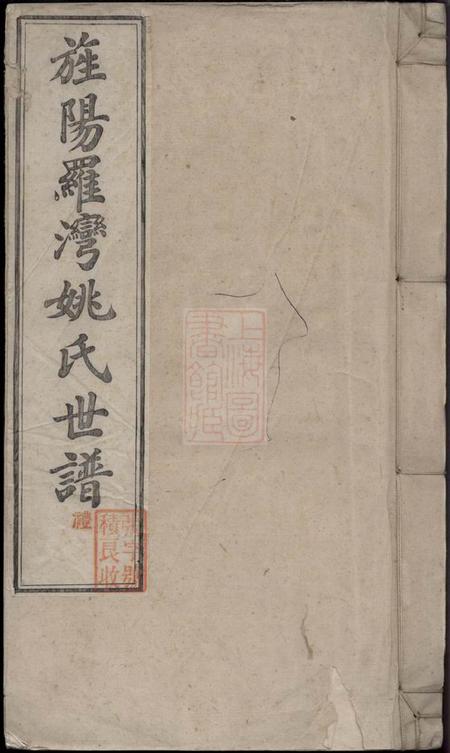 旌陽羅灣姚氏世譜
禮
積良收
上海圖
書館藏